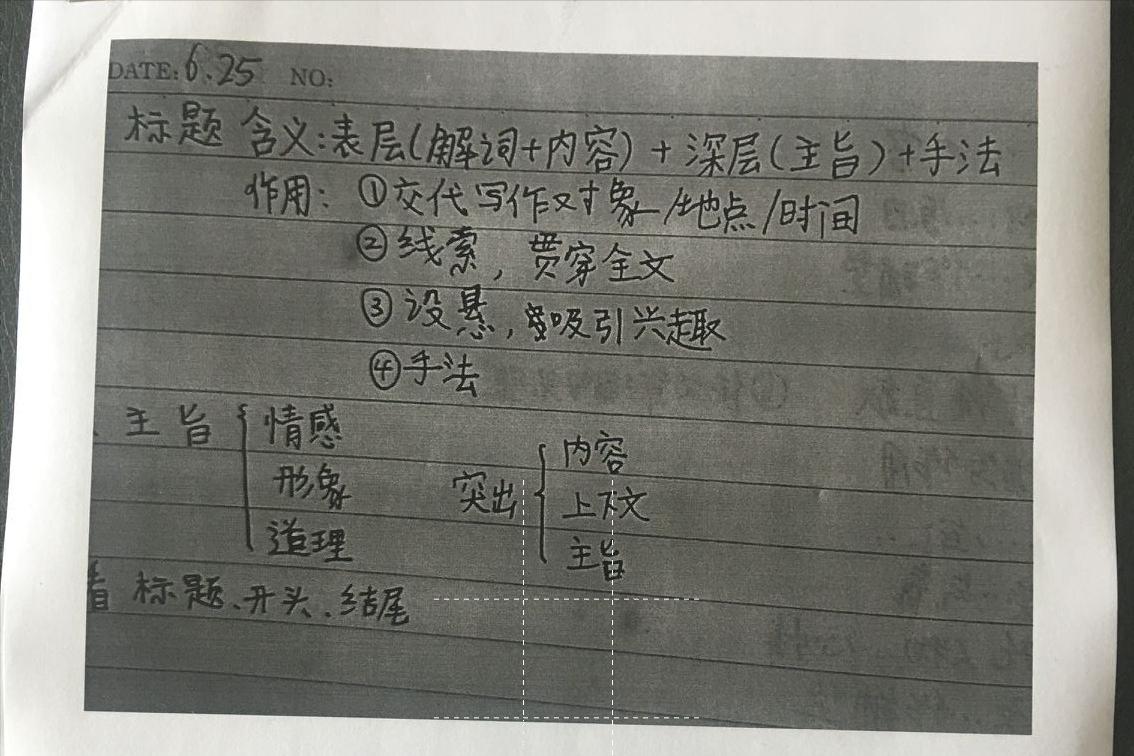 DATE: 6.25 NO:
标题 含义:表层(解词+内容)+深层(主旨)+手法
作用: ①交代写作对象/地点/时间
②线索,贯穿全文
③设悬,吸引兴趣
④手法
主旨 { 情感
形象
道理
突出 { 内容
上下文
主旨
看 标题、开头、结尾